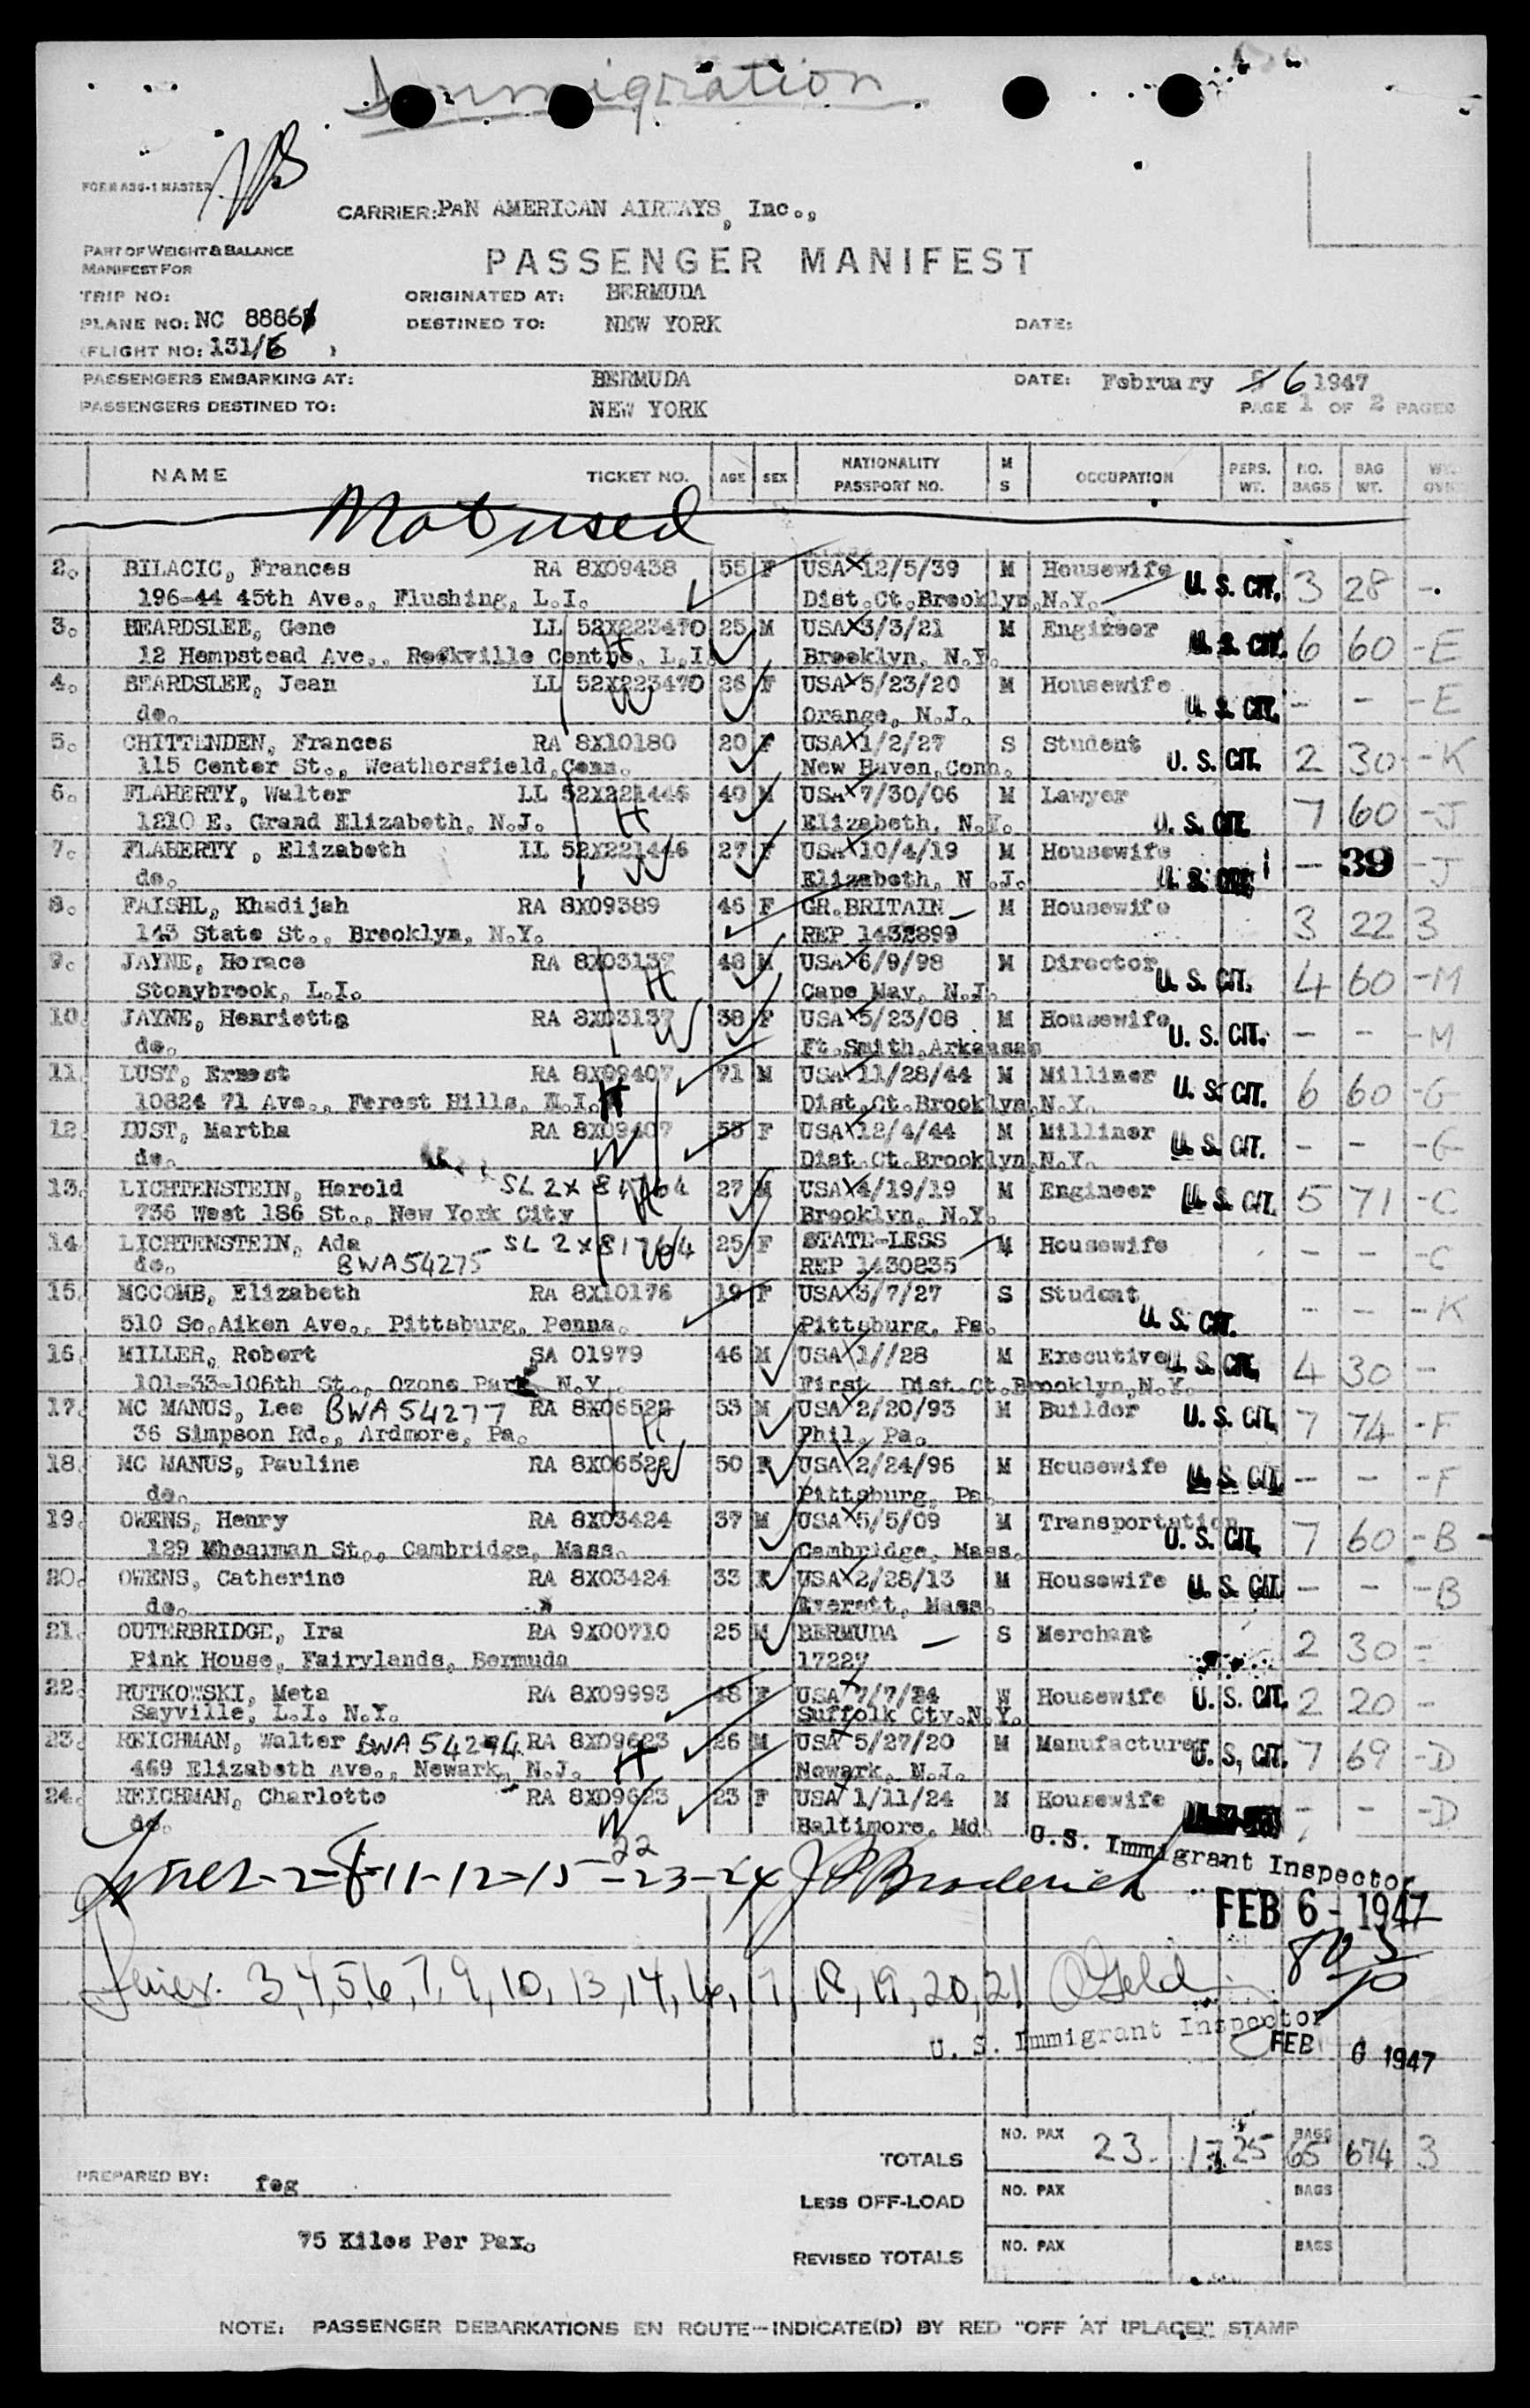 Immigration
FORM A36-1 MASTER
CARRIER: PAN AMERICAN AIRWAYS, Inc.,
PART OF WEIGHT & BALANCE
MANIFEST FOR
PASSENGER MANIFEST
TRIP NO: ORIGINATED AT: BERMUDA
PLANE NO: NC 8886 DESTINED TO: NEW YORK DATE:
(FLIGHT NO: 131/6 )
PASSENGERS EMBARKING AT: BERMUDA DATE: February 6 1947
PASSENGERS DESTINED TO: NEW YORK PAGE 1 OF 2 PAGES
NAME TICKET NO. AGE SEX NATIONALITY PASSPORT NO. M S OCCUPATION PERS. WT. NO. BAGS BAG WT.
Not used
2. BILACIC, Frances RA 8X09438 55 F USA 12/5/39 M Housewife U. S. CIT. 3 28 -.
196-44 45th Ave., Flushing, L.I. Dist.Ct.Brooklyn,N.Y.
3. BEARDSLEE, Gene LL 52X223470 25 M USA 3/3/21 M Engineer U. S. CIT. 6 60 -E
12 Hempstead Ave., Rockville Centre, L.I. H Brooklyn, N.Y.
4. BEARDSLEE, Jean LL 52X223470 26 F USA 5/23/20 M Housewife U. S. CIT. - - -E
do. W Orange, N.J.
5. CHITTENDEN, Frances RA 8X10180 20 F USA 1/2/27 S Student U. S. CIT. 2 30 -K
115 Center St., Weathersfield,Conn. New Haven,Conn.
6. FLAHERTY, Walter LL 52X221446 40 M USA 7/30/06 M Lawyer U. S. CIT. 7 60 -J
1210 E. Grand Elizabeth, N.J. H Elizabeth, N.J.
7. FLAHERTY , Elizabeth LL 52X221446 27 F USA 10/4/19 M Housewife U. S. CIT. - 39 -J
do. W Elizabeth, N .J.
8. FAISHL, Khadijah RA 8X09389 46 F GR.BRITAIN M Housewife 3 22 3
143 State St., Brooklyn, N.Y. REP 1432899
9. JAYNE, Horace RA 8X03137 48 M USA 6/9/98 M Director U. S. CIT. 4 60 -M
Stonybrook, L.I. H Cape May, N.J.
10. JAYNE, Henrietta RA 8X03137 38 F USA 5/23/08 M Housewife U. S. CIT. - - -M
do. W Ft.Smith,Arkansas
11. LUST, Ernest RA 8X09407 71 M USA 11/28/44 M Milliner U. S. CIT. 6 60 -G
10824 71 Ave., Forest Hills, L.I. H Dist.Ct.Brooklyn,N.Y.
12. LUST, Martha RA 8X09407 55 F USA 12/4/44 M Milliner U. S. CIT. - - -G
do. W Dist.Ct.Brooklyn,N.Y.
13. LICHTENSTEIN, Harold SL 2X81764 27 M USA 4/19/19 M Engineer U. S. CIT. 5 71 -C
736 West 186 St., New York City H Brooklyn, N.Y.
14. LICHTENSTEIN, Ada SL 2X81764 25 F STATE-LESS M Housewife - - -C
do. BWA54275 W REP 1430235
15. MCCOMB, Elizabeth RA 8X10176 19 F USA 5/7/27 S Student U. S. CIT. - - -K
510 So.Aiken Ave., Pittsburg, Penna. Pittsburg, Pa.
16. MILLER, Robert SA 01979 46 M USA 1//28 M Executive U. S. CIT. 4 30 -
101-33-106th St., Ozone Park, N.Y. First Dist.Ct.Brooklyn,N.Y.
17. MC MANUS, Lee BWA 54277 RA 8X06522 53 M USA 2/20/93 M Builder U. S. CIT. 7 74 -F
36 Simpson Rd., Ardmore, Pa. H Phil. Pa.
18. MC MANUS, Pauline RA 8X06522 50 F USA 2/24/96 M Housewife U. S. CIT. - - -F
do. W Pittsburg, Pa.
19. OWENS, Henry RA 8X03424 37 M USA 5/5/09 M Transportation U. S. CIT. 7 60 -B
129 St., Cambridge, Mass. Cambridge, Mass.
20. OWENS, Catherine RA 8X03424 33 F USA 2/28/13 M Housewife U. S. CIT. - - -B
do. Everett, Mass.
21. OUTERBRIDGE, Ira RA 9X00710 25 M BERMUDA S Merchant 2 30 -
Pink House, Fairylands, Bermuda 17227
22. RUTKOWSKI, Meta RA 8X09993 48 F USA 7/7/24 W Housewife U. S. CIT. 2 20 -
Sayville, L.I. N.Y. Suffolk Cty.N.Y.
23. REICHMAN, Walter BWA 54274 RA 8X09623 26 M USA 5/27/20 M Manufacturer U. S. CIT. 7 69 -D
469 Elizabeth Ave., Newark, N.J. H Newark, N.J.
24. REICHMAN, Charlotte RA 8X09623 23 F USA 1/11/24 M Housewife - - -D
do. W Baltimore, Md.
Lines-2-8-11-12-15-22-23-24 J P Broderick U.S. Immigrant Inspector
FEB 6 - 1947
Lines. 3,4,5,6,7,9,10, 13,14,16,17, 18, 19, 20, 21 O Geld
U. S. Immigrant Inspector
FEB 6 1947
TOTALS NO. PAX 23. 1725 BAGS 65 674 3
PREPARED BY: feg
LESS OFF-LOAD NO. PAX BAGS
75 Kilos Per Pax.
REVISED TOTALS NO. PAX BAGS
NOTE: PASSENGER DEBARKATIONS EN ROUTE--INDICATE(D) BY RED "OFF AT (PLACE)" STAMP